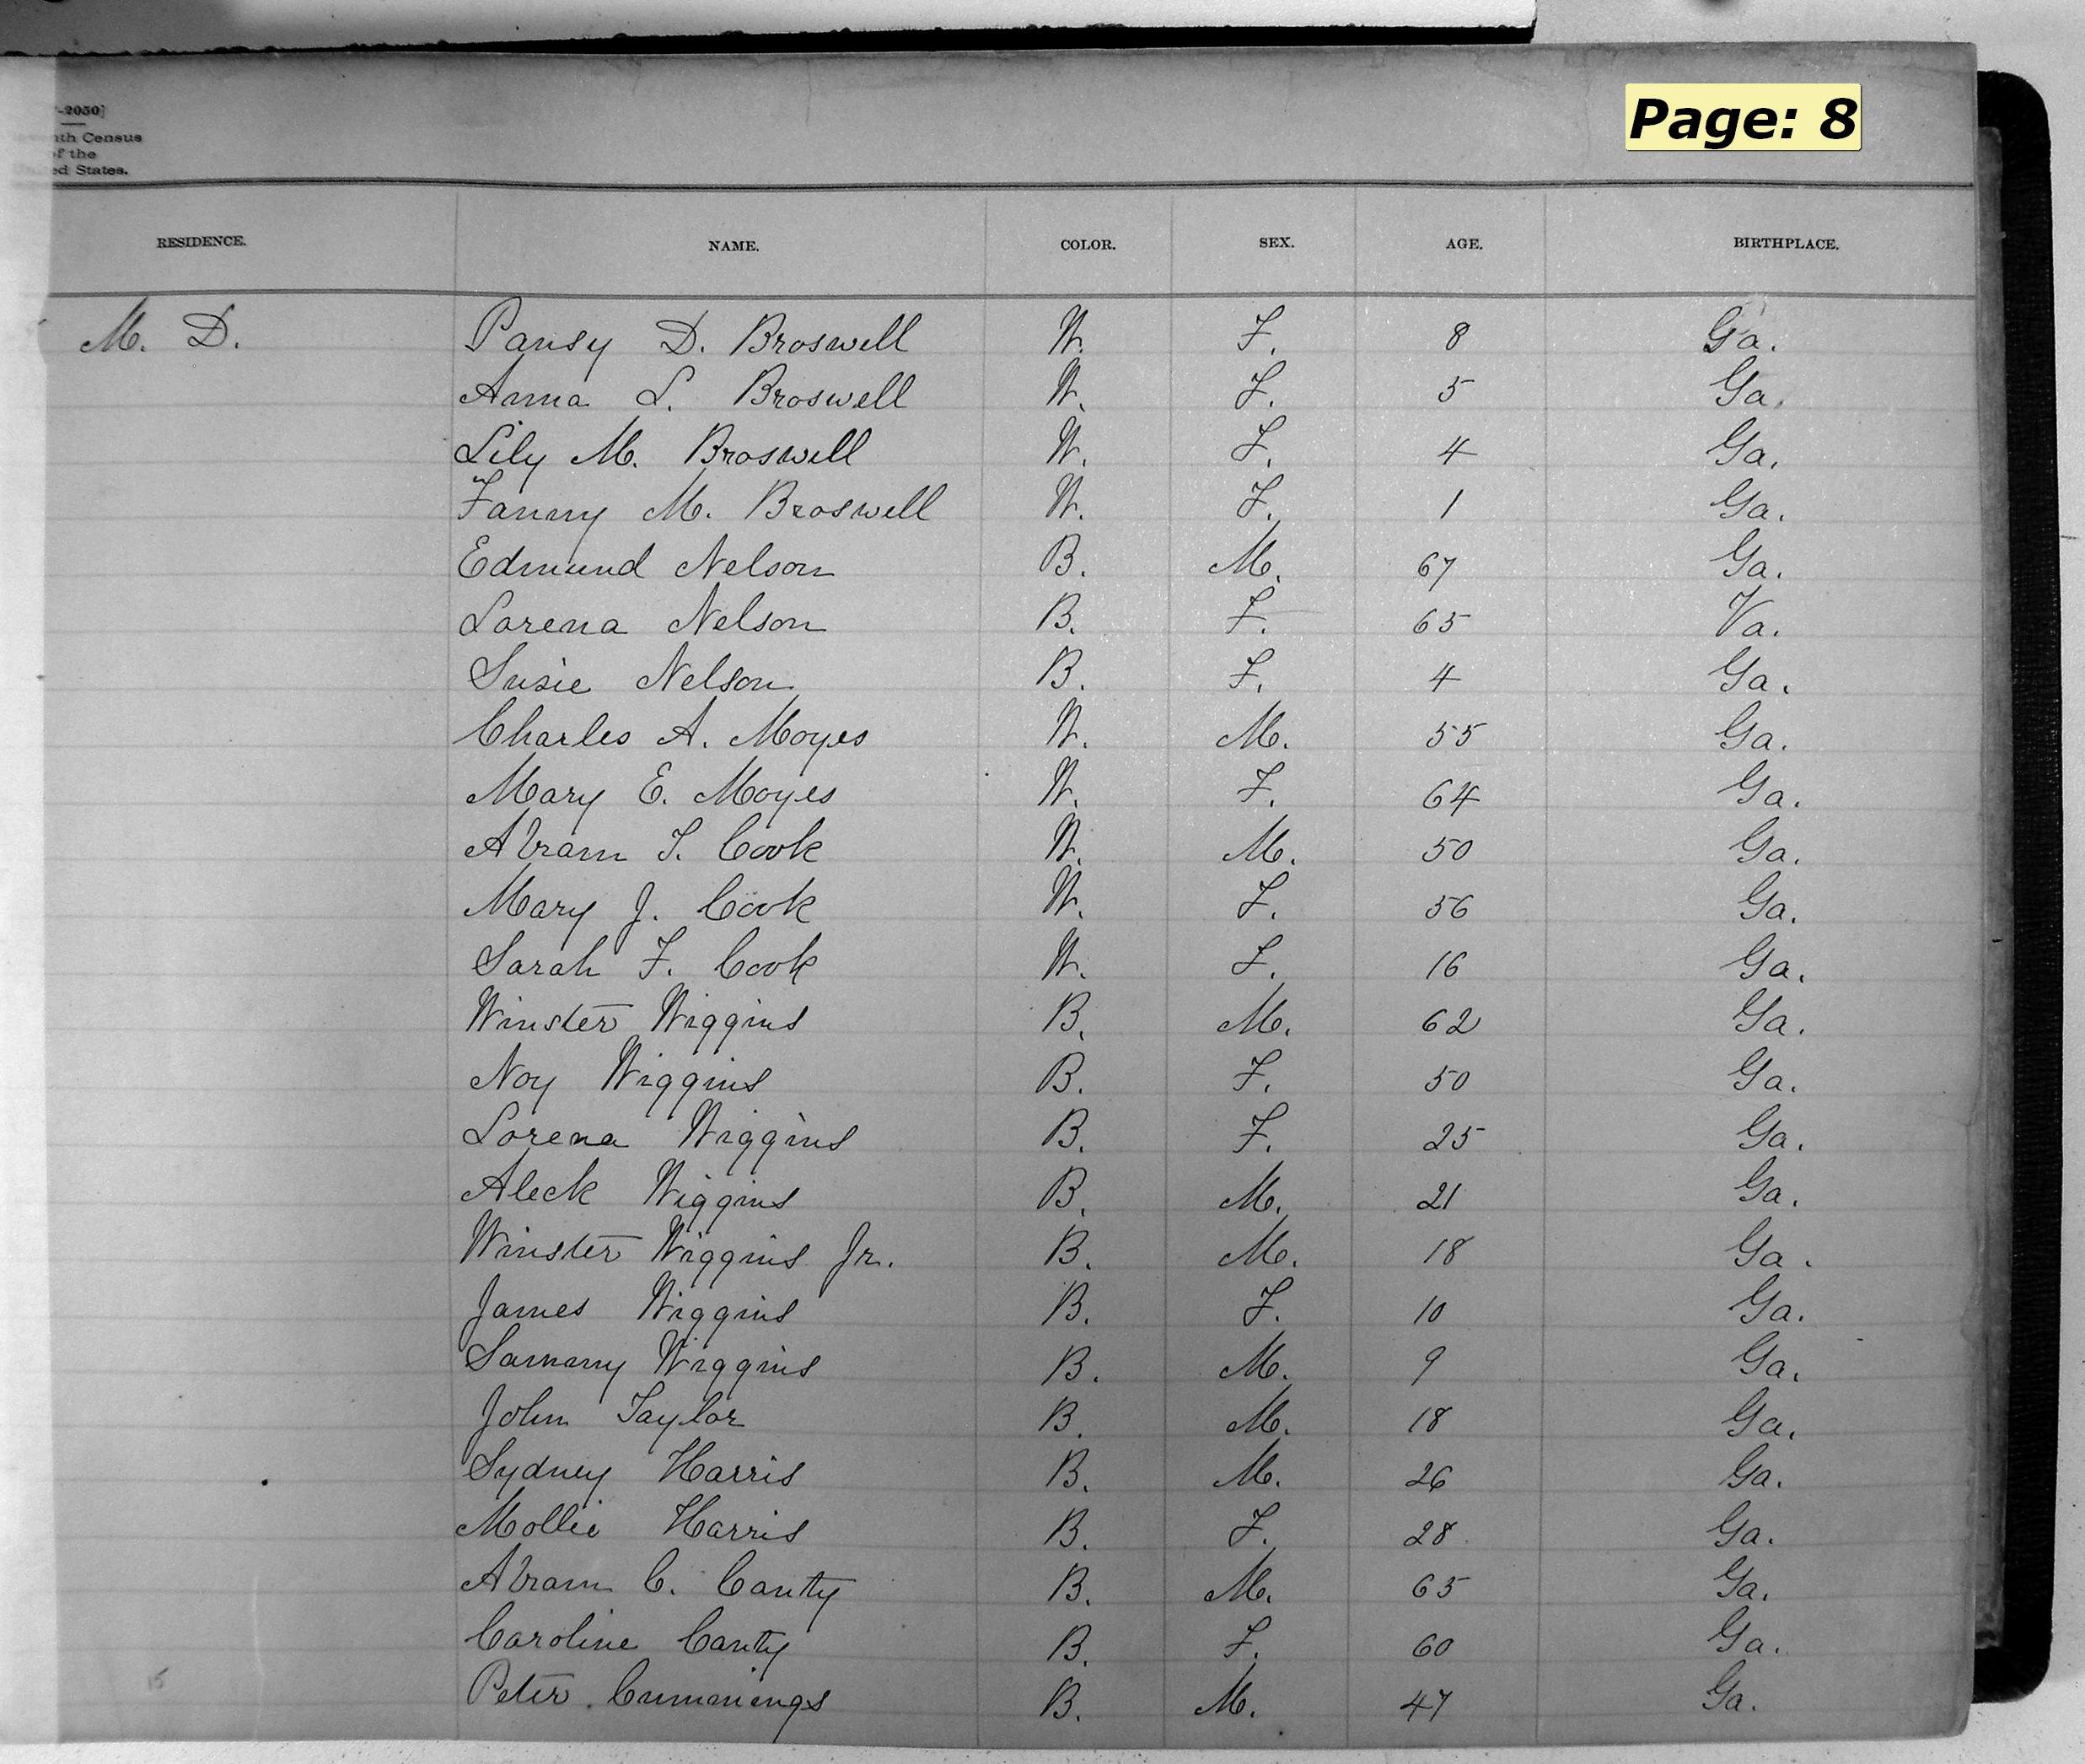 Page: 8
-2050]
nth Census
of the
ed States.
RESIDENCE. NAME. COLOR. SEX. AGE. BIRTHPLACE.
M. D. Pansy D. Broswell W. F. 8 Ga.
Anna L. Broswell W. F. 5 Ga.
Lily M. Broswell W. F. 4 Ga.
Fanny M. Broswell W. F. 1 Ga.
Edmund Nelson B. M. 67 Ga.
Lorena Nelson B. F. 65 Va.
Susie Nelson B. F. 4 Ga.
Charles A. Moyes W. M. 55 Ga.
Mary E. Moyes W. F. 64 Ga.
Abram T. Cook W. M. 50 Ga.
Mary J. Cook W. F. 56 Ga.
Sarah F. Cook W. F. 16 Ga.
Winster Wiggins B. M. 62 Ga.
Noy Wiggins B. F. 50 Ga.
Lorena Wiggins B. F. 25 Ga.
Aleck Wiggins B. M. 21 Ga.
Winster Wiggins Jr. B. M. 18 Ga.
James Wiggins B. F. 10 Ga.
Sammy Wiggins B. M. 9 Ga.
John Taylor B. M. 18 Ga.
Sydney Harris B. M. 26 Ga.
Mollie Harris B. F. 28 Ga.
Abram C. Canty B. M. 65 Ga.
Caroline Canty B. F. 60 Ga.
Peter Cummings B. M. 47 Ga.
15